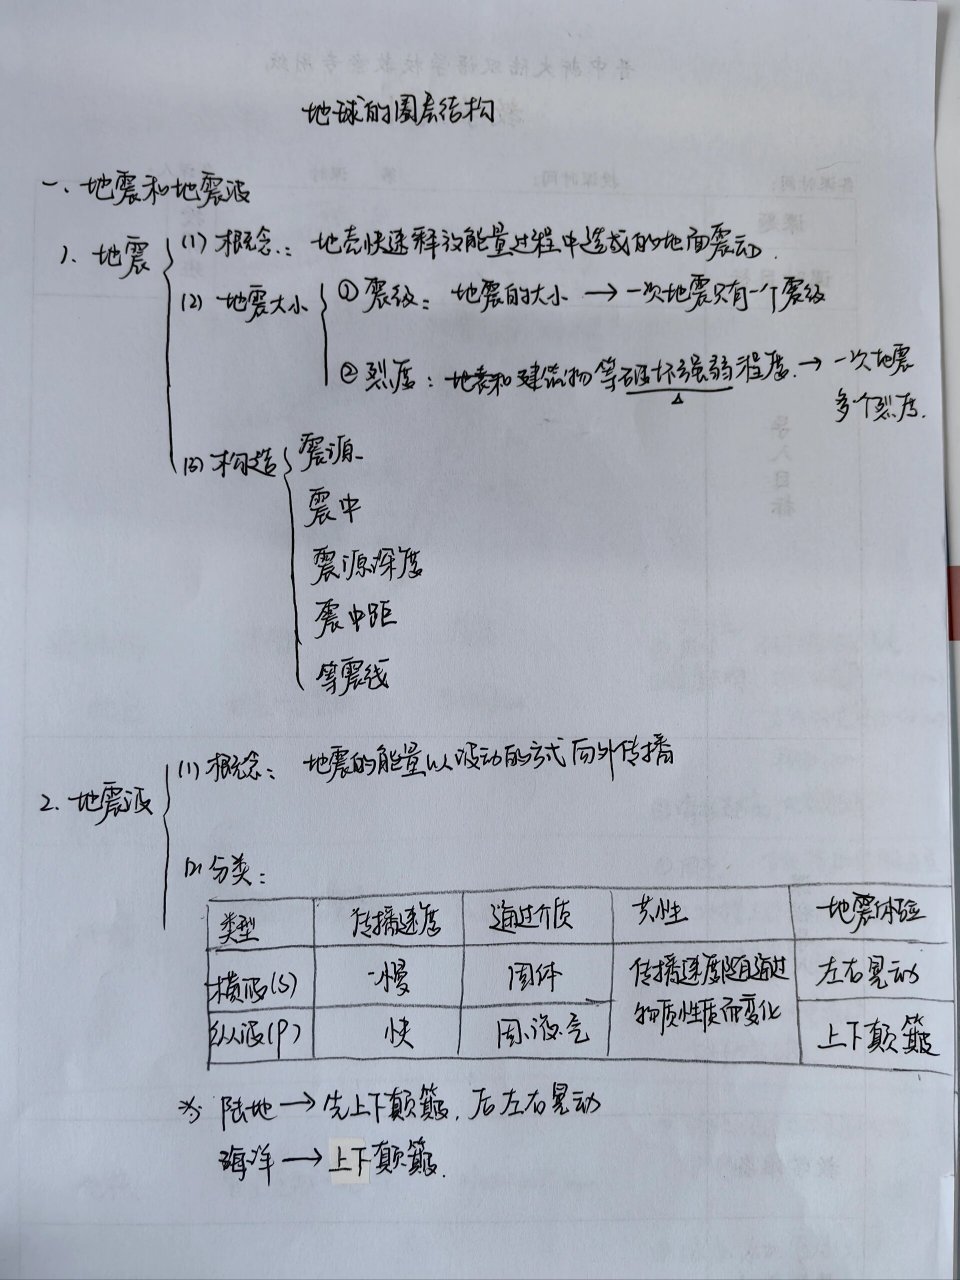 地球的圈层结构
一、地震和地震波
1、地震
(1) 概念: 地壳快速释放能量过程中造成的地面震动
(2) 地震大小
① 震级: 地震的大小 → 一次地震只有一个震级
② 烈度: 地表和建筑物等破坏强弱程度 → 一次地震
多个烈度.
(3) 构造
震源
震中
震源深度
震中距
等震线
2. 地震波
(1) 概念: 地震的能量以波动的方式向外传播
(2) 分类:
类型 传播速度 通过介质 共性 地震体验
横波(S) 慢 固体 传播速度随通过 左右晃动
物质性质而变化
纵波(P) 快 固.液.气 上下颠簸
※ 陆地 → 先上下颠簸, 后左右晃动
海洋 → 上下颠簸.